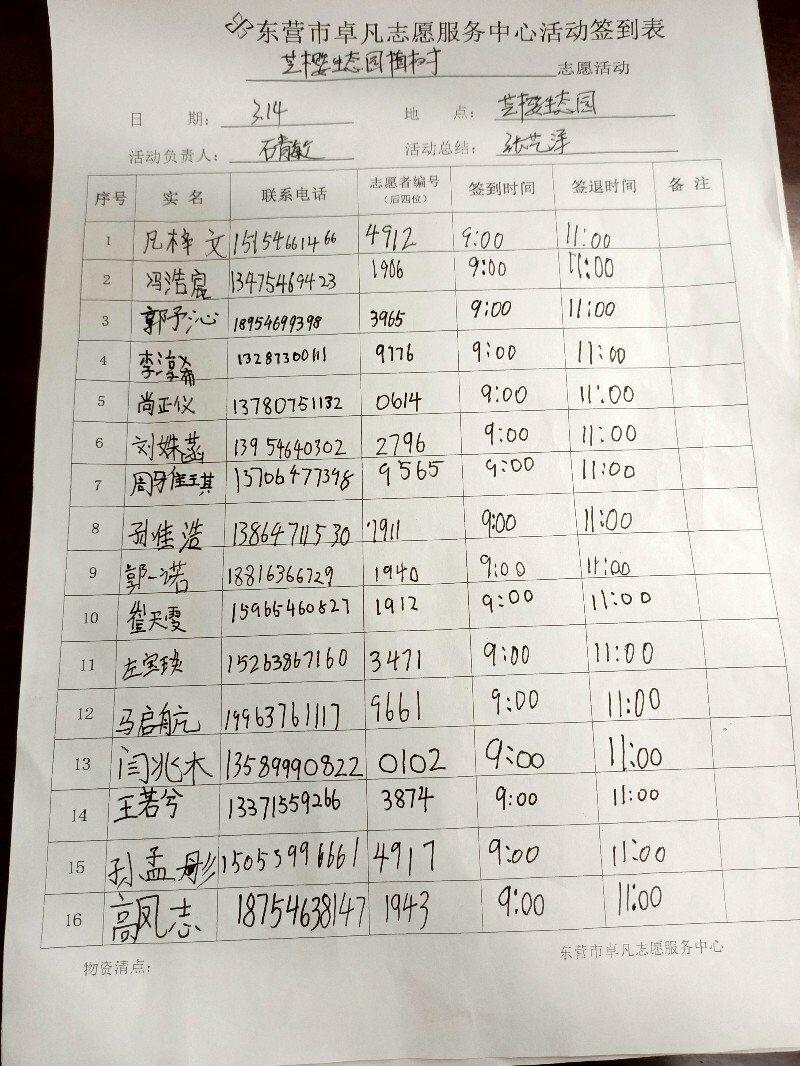 东营市卓凡志愿服务中心活动签到表
芸樱生态园植树 志愿活动
日 期： 3.14 地 点： 芸樱生态园
活动负责人： 石青敏 活动总结： 张艺泽
序号 实 名 联系电话 志愿者编号（后四位） 签到时间 签退时间 备 注
1 凡梓文 15154661466 4912 9:00 11:00
2 冯浩宸 13475469423 1906 9:00 11:00
3 郭予沁 18954699398 3965 9:00 11:00
4 13287300111 9776 9:00 11:00
5 尚正仪 13780751132 0614 9:00 11:00
6 刘姝菡 13954640302 2796 9:00 11:00
7 13706477398 9565 9:00 11:00
8 孙佳浩 13864711530 7911 9:00 11:00
9 郭一诺 18816366729 1940 9:00 11:00
10 翟天雯 15965460827 1912 9:00 11:00
11 左宝瑛 15263867160 3471 9:00 11:00
12 马启航 19963761117 9661 9:00 11:00
13 闫兆木 13589990822 0102 9:00 11:00
14 王若兮 13371559266 3874 9:00 11:00
15 孙孟彤 15053996661 4917 9:00 11:00
16 高凤志 18754638147 1943 9:00 11:00
物资清点：
东营市卓凡志愿服务中心